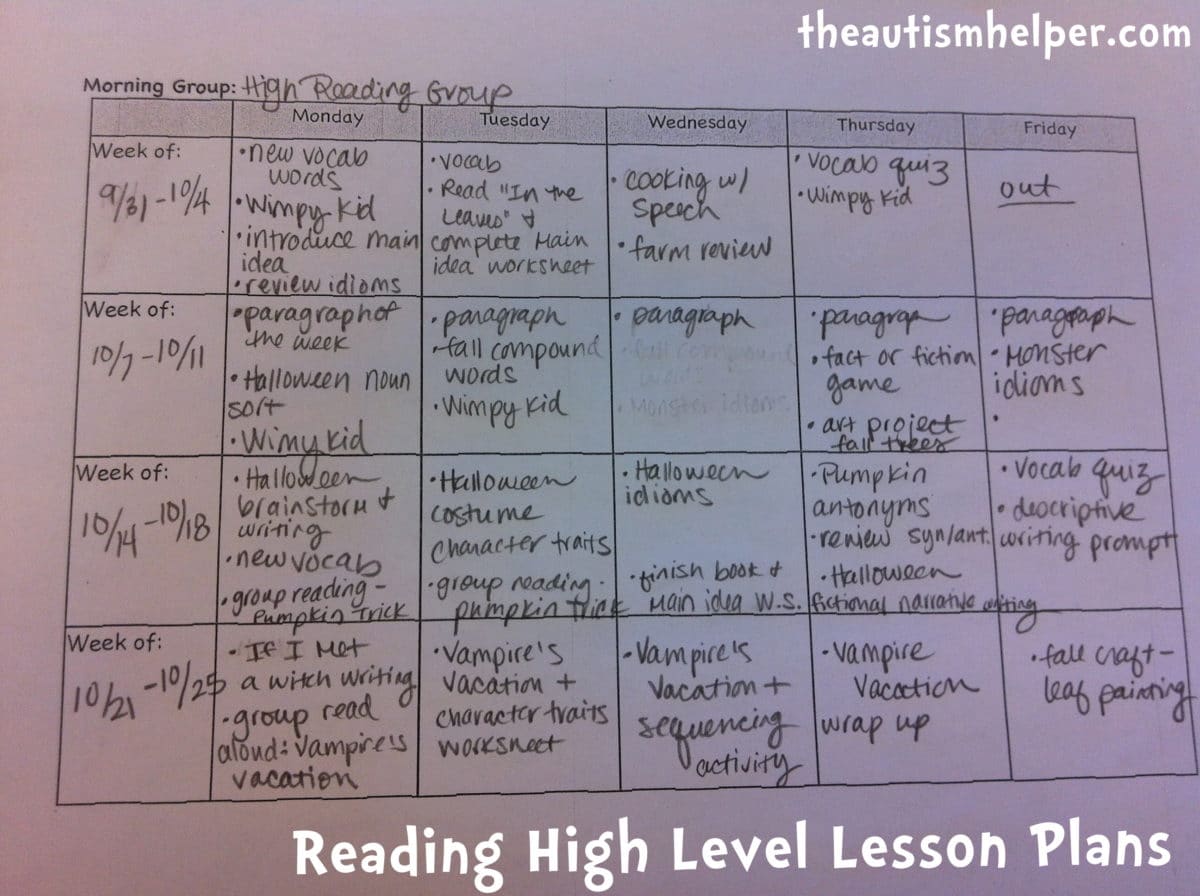 theautismhelper.com
Morning Group: High Reading Group
Monday
Tuesday
Wednesday
Thursday
Friday
Week of:
9/31-10/4
•new vocab
words
•Wimpy Kid
•introduce main
idea
•review idioms
•vocab
•Read "In the
Leaves" &
complete Main
idea worksheet
•cooking w/
speech
•farm review
•vocab quiz
•Wimpy Kid
out
Week of:
10/7-10/11
•paragraph of
the week
•Halloween noun
sort
•Wimy kid
•paragraph
•fall compound
words
•Wimpy Kid
•paragraph
•fall compound
words
•Monster idioms
•paragrap
•fact or fiction
game
•art project
fall trees
•paragraph
•Monster
idioms
•
Week of:
10/14-10/18
•Halloween
brainstorm &
writing
•new vocab
•group reading-
Pumpkin Trick
•Halloween
costume
character traits
•group reading-
pumpkin trick
•Halloween
idioms
•finish book &
Main idea W.S.
•Pumpkin
antonyms
•review syn/ant.
•Halloween
fictional narrative writing
•vocab quiz
•descriptive
writing prompt
Week of:
10/21-10/25
•If I Met
a witch writing
•group read
aloud: Vampire's
vacation
•Vampire's
vacation +
character traits
worksheet
•Vampire's
Vacation +
sequencing
activity
•Vampire
Vacation
wrap up
•fall craft-
leaf painting
Reading High Level Lesson Plans